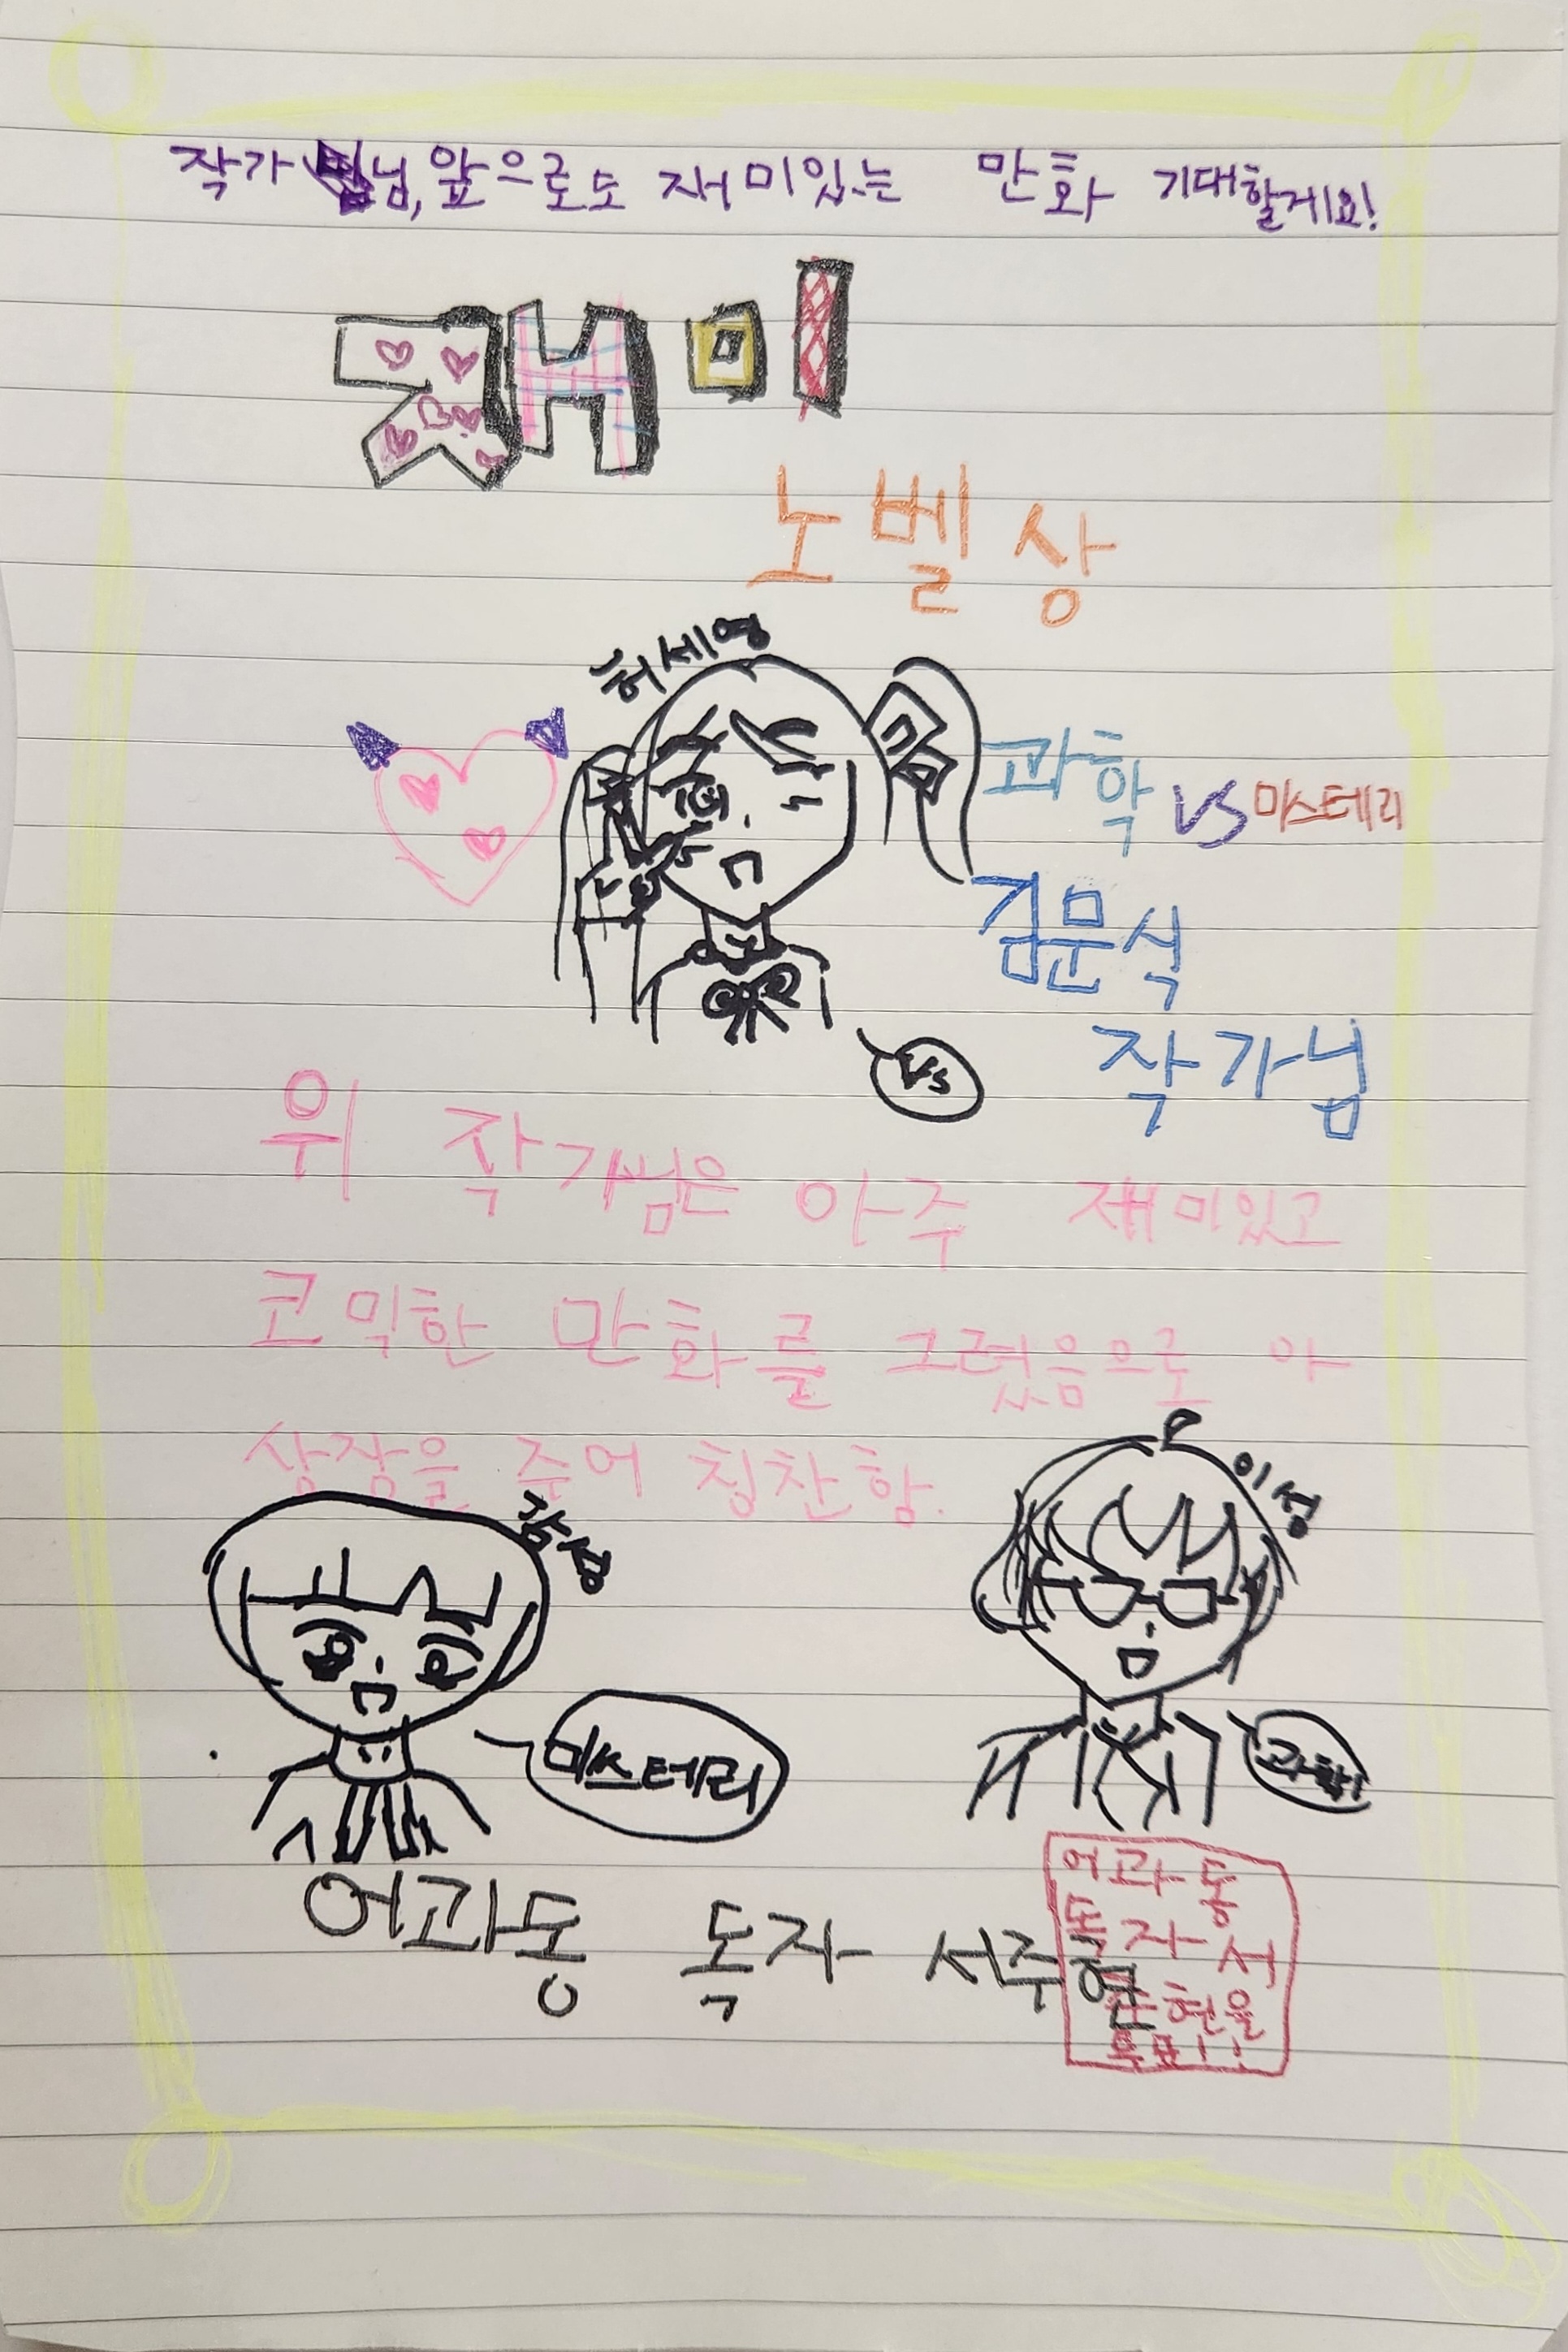 작가님, 앞으로도 재미있는 만화 기대할게요!
재미
노벨상
허세영
과학 VS 미스테리
김문식
작가님
VS
위 작가님은 아주 재미있고
코믹한 만화를 그렸음으로 이
상장을 주어 칭찬함.
감성
이성
미스테리
과학!
어과동 독자 서주현
어과동
독자 서
주현을
투표!!